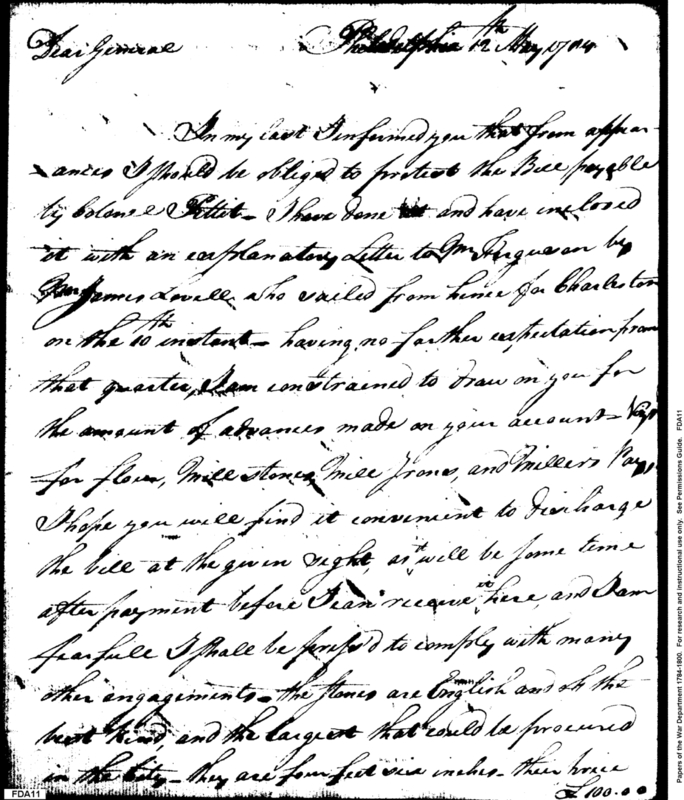 Dear General
Philadelphia 12th May 1784
In my last I informed you that from appear-
ances I should be obliged to protest the Bill payable
by Colonel Pettit - I have done and have inclosed
it with an explanatory Letter to Mr Ferguson by
James Lovell who sailed from hence for Charleston
on the 10th instant - having no farther expectation from
that quarter, I am constrained to draw on you for
the amount of advances made on your account -
for flour, Mill stones, Mill Irons, and Millers Pay,
I hope you will find it convenient to discharge
the bill at the given sight, as it will be some time
after payment before I can receive it here, and I am
fearfull I shall be press'd to comply with many
other engagements - the stones are English and of the
best kind, and the largest that could be procured
in the City - they are four feet six inches - their price
£100.00
FDA11
Papers of the War Department 1784-1800. For research and instructional use only. See Permissions Guide. FDA11